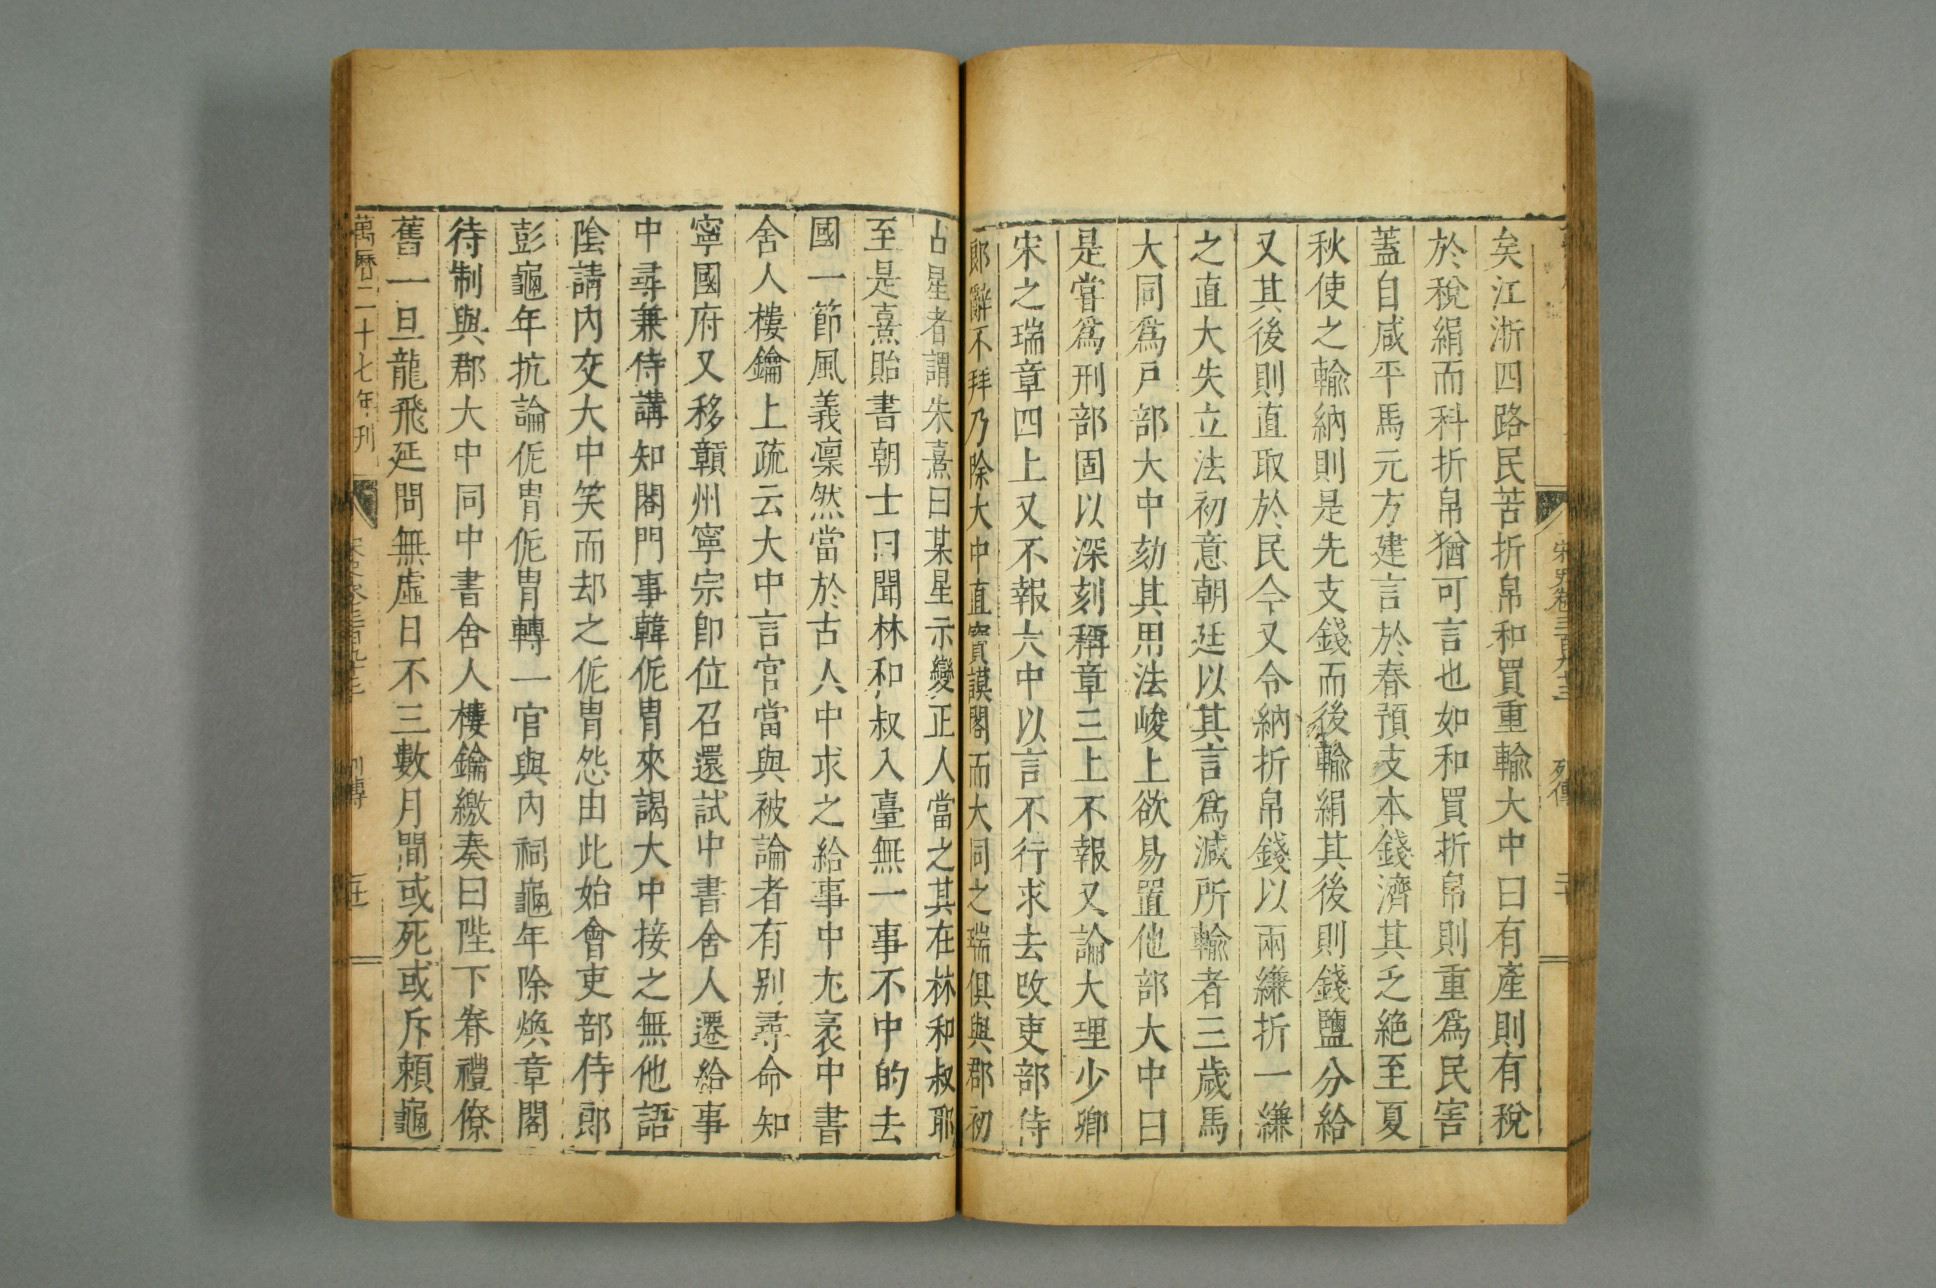 矣江浙四路民苦折帛和買重輸大中曰有產則有稅
於稅絹而科折帛猶可言也如和買折帛則重爲民害
蓋自咸平馬元方建言於春預支本錢濟其乏絶至夏
秋使之輸納則是先支錢而後輸絹其後則錢鹽分給
又其後則直取於民今又令納折帛錢以兩縑折一縑
之直大失立法初意朝廷以其言爲減所輸者三歲馬
大同爲戸部大中劾其用法峻上欲易置他部大中曰
是嘗爲刑部固以深刻稱章三上不報又論大理少卿
宋之瑞章四上又不報大中以言不行求去改吏部侍
郎辭不拜乃除大中直寶謨閣而大同之瑞俱與郡初
占星者謂朱熹曰某星示變正人當之其在林和叔耶
至是熹貽書朝士曰聞林和叔入臺無一事不中的去
國一節風義凛然當於古人中求之給事中尤袤中書
舍人樓鑰上疏云大中言官當與被論者有别尋命知
寧國府又移贛州寧宗卽位召還試中書舍人遷給事
中尋兼侍講知閤門事韓侂胄來謁大中接之無他語
隂請内交大中笑而却之侂胄怨由此始會吏部侍郎
彭龜年抗論侂胄侂胄轉一官與内祠龜年除煥章閣
待制與郡大中同中書舍人樓鑰繳奏曰陛下眷禮僚
舊一旦龍飛延問無虛日不三數月間或死或斥賴龜
萬曆二十七年刊
宋史卷三百九十三
列傳